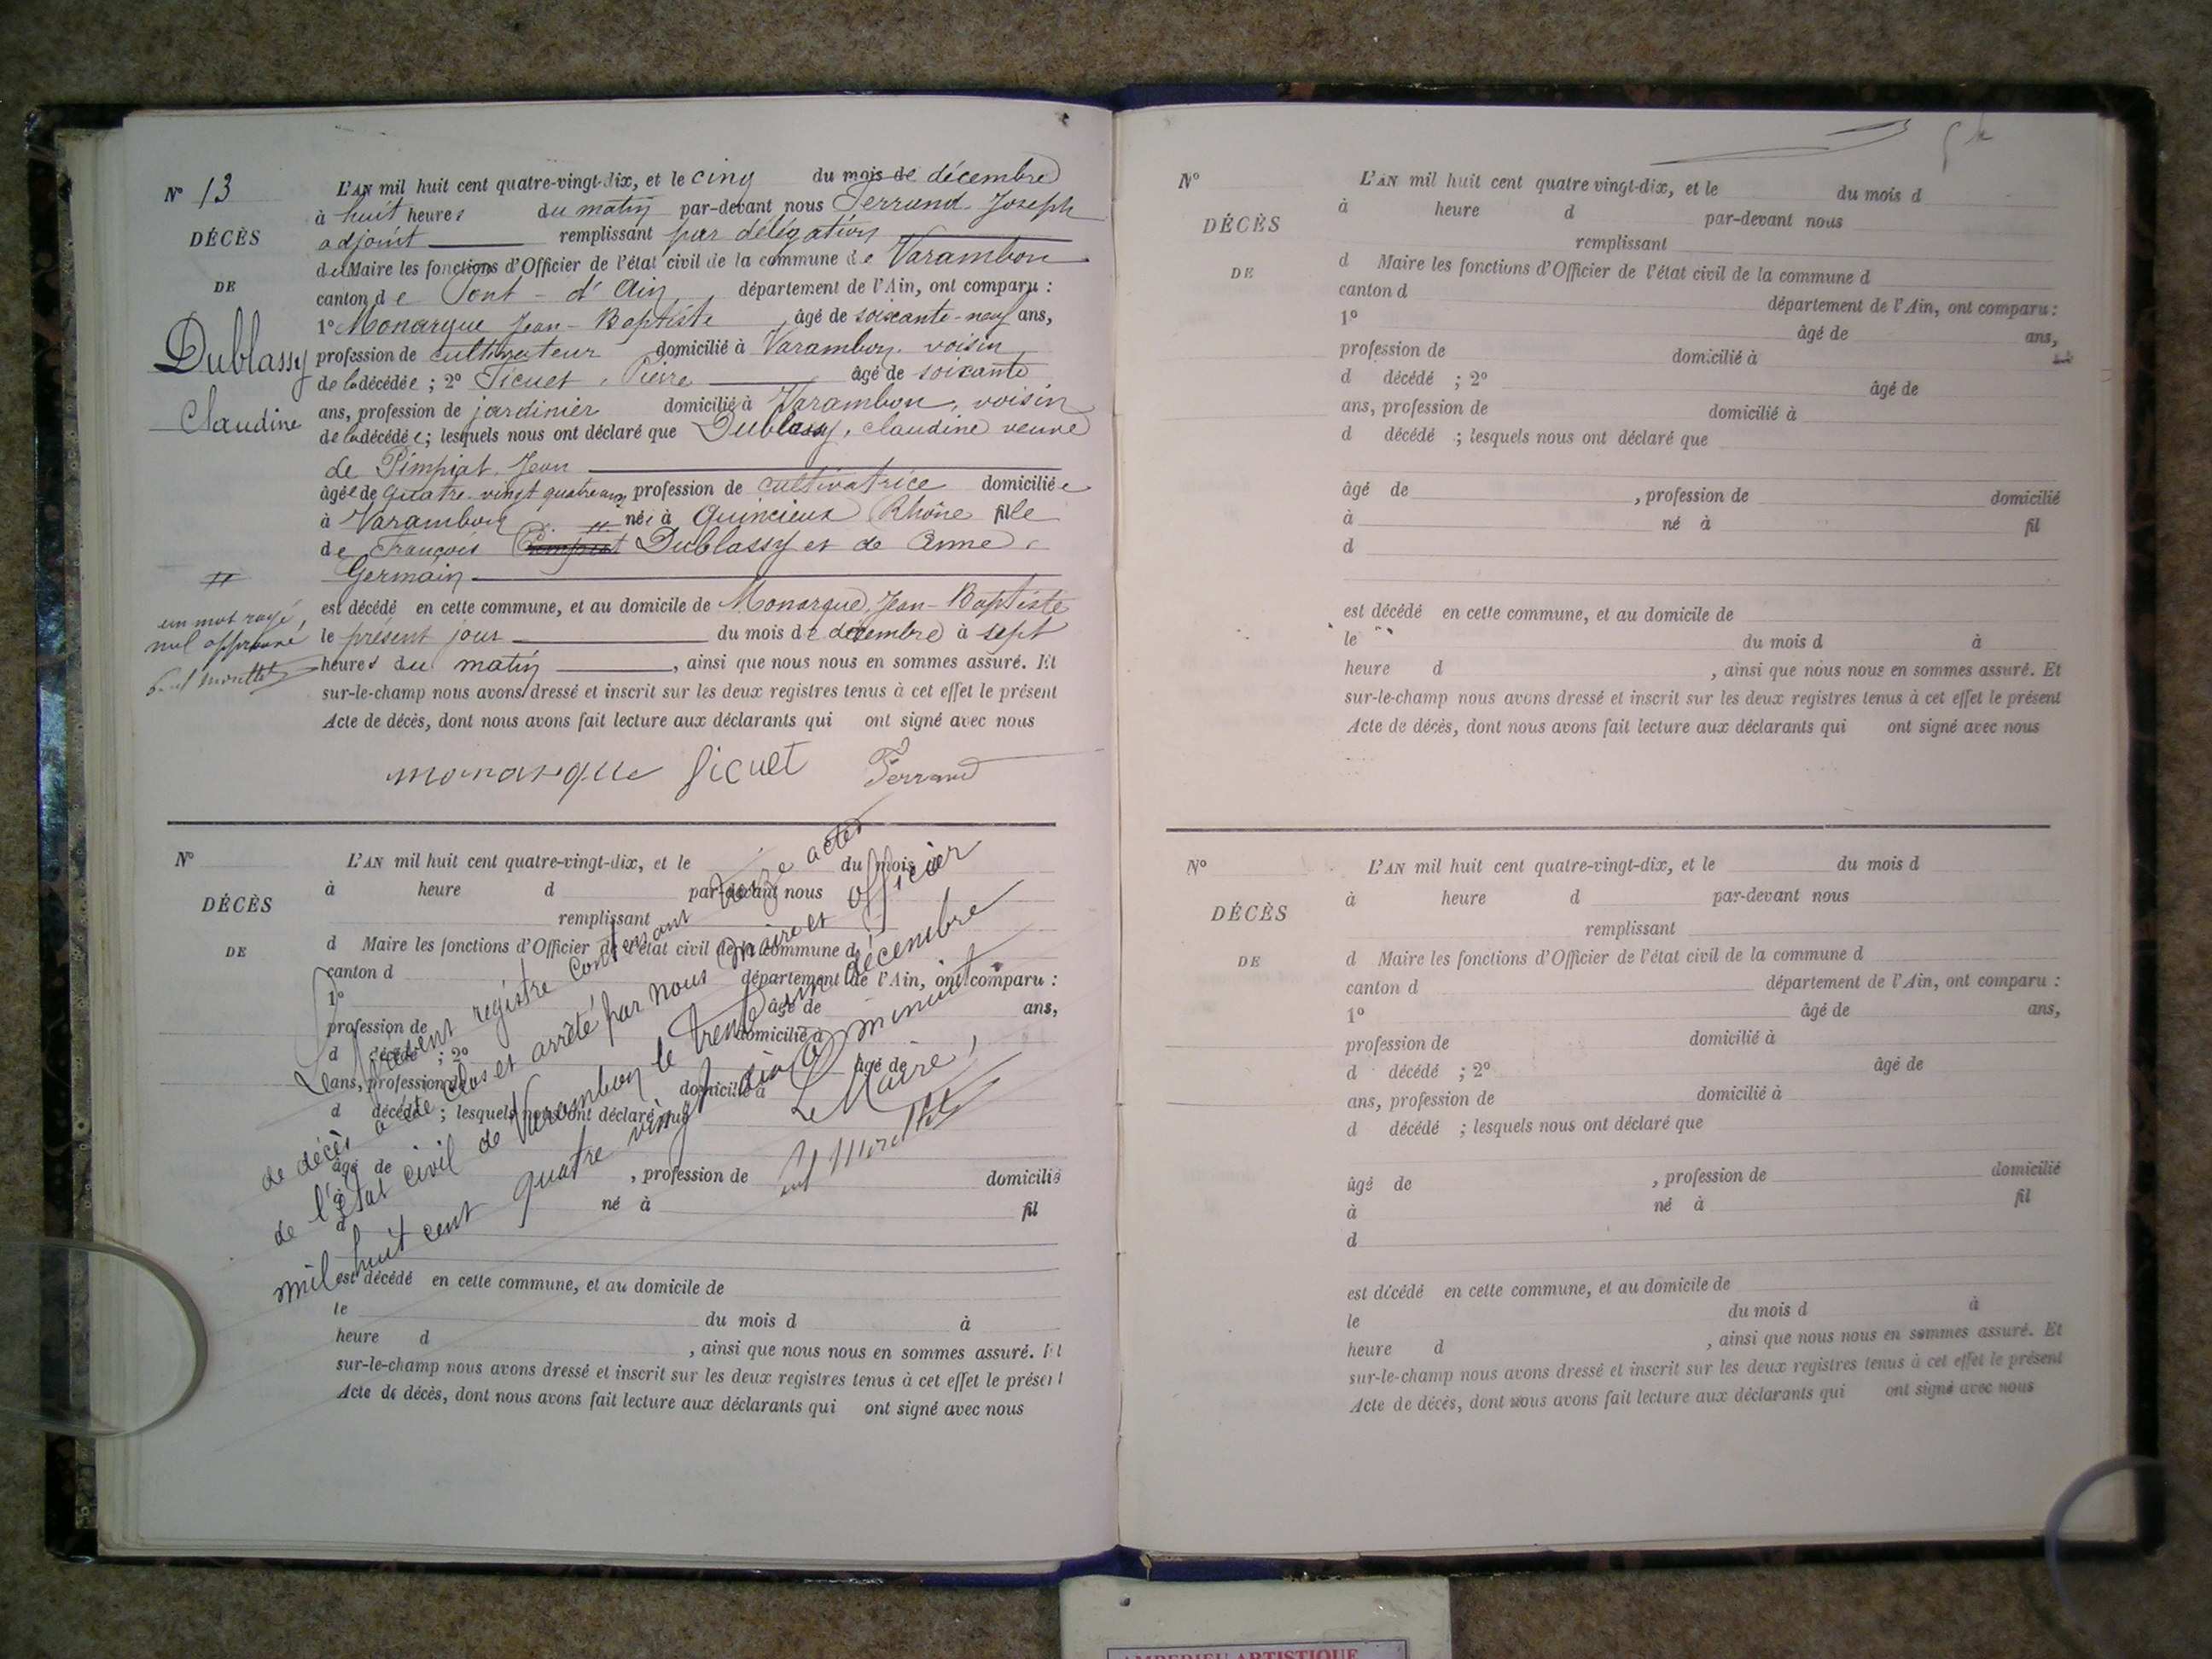 N° 13
DÉCÈS
DE
Dublassy
Claudine
L'AN mil huit cent quatre-vingt-dix, et le cinq du mois de décembre
à huit heures du matin par-devant nous Ferrand Joseph
adjoint remplissant par délégation
du Maire les fonctions d'Officier de l'état civil de la commune de Varambon
canton de Pont-d'Ain, département de l'Ain, ont comparu :
1° Monarque Jean-Baptiste, âgé de soixante-neuf ans,
profession de cultivateur domicilié à Varambon, voisin
de la décédée ; 2° Sicuet, Pierre âgé de soixante
ans, profession de jardinier domicilié à Varambon, voisin
de la décédée ; lesquels nous ont déclaré que Dublassy, Claudine veuve
de Pimpiat Jean
âgée de quatre-vingt quatre ans, profession de cultivatrice domiciliée
à Varambon née à Quincieux Rhône fille
de François Dublassy et de Anne
Germain
est décédé en cette commune, et au domicile de Monarque, Jean-Baptiste
le présent jour du mois de décembre à sept
heures du matin, ainsi que nous nous en sommes assuré. Et
sur-le-champ nous avons dressé et inscrit sur les deux registres tenus à cet effet le présent
Acte de décès, dont nous avons fait lecture aux déclarants qui ont signé avec nous
un mot rayé,
nul approuvé
monarque Sicuet Ferrand
N°
DÉCÈS
DE
L'AN mil huit cent quatre-vingt-dix, et le du mois d
à heure d par-devant nous
remplissant
d Maire les fonctions d'Officier de l'état civil de la commune d
canton d département de l'Ain, ont comparu :
1° âgé de ans,
profession de domicilié à
d décédé ; 2° âgé de
ans, profession de domicilié à
d décédé ; lesquels nous ont déclaré que
âgé de , profession de domicilié
à né à fil
d
est décédé en cette commune, et au domicile de
le du mois d à
heure d , ainsi que nous nous en sommes assuré. Et
sur-le-champ nous avons dressé et inscrit sur les deux registres tenus à cet effet le présent
Acte de décès, dont nous avons fait lecture aux déclarants qui ont signé avec nous
Le présent registre contenant treize actes
de décès a été clos et arrêté par nous Maire et officier
de l'état civil de Varambon le trente un décembre
mil huit cent quatre vingt dix à minuit.
Le Maire,
N°
DÉCÈS
DE
L'AN mil huit cent quatre vingt-dix, et le du mois d
à heure d par-devant nous
remplissant
d Maire les fonctions d'Officier de l'état civil de la commune d
canton d département de l'Ain, ont comparu :
1° âgé de ans,
profession de domicilié à
d décédé ; 2° âgé de
ans, profession de domicilié à
d décédé ; lesquels nous ont déclaré que
âgé de , profession de domicilié
à né à fil
d
est décédé en cette commune, et au domicile de
le du mois d à
heure d , ainsi que nous nous en sommes assuré. Et
sur-le-champ nous avons dressé et inscrit sur les deux registres tenus à cet effet le présent
Acte de décès, dont nous avons fait lecture aux déclarants qui ont signé avec nous
N°
DÉCÈS
DE
L'AN mil huit cent quatre-vingt-dix, et le du mois d
à heure d par-devant nous
remplissant
d Maire les fonctions d'Officier de l'état civil de la commune d
canton d département de l'Ain, ont comparu :
1° âgé de ans,
profession de domicilié à
d décédé ; 2° âgé de
ans, profession de domicilié à
d décédé ; lesquels nous ont déclaré que
âgé de , profession de domicilié
à né à fil
d
est décédé en cette commune, et au domicile de
le du mois d à
heure d , ainsi que nous nous en sommes assuré. Et
sur-le-champ nous avons dressé et inscrit sur les deux registres tenus à cet effet le présent
Acte de décès, dont nous avons fait lecture aux déclarants qui ont signé avec nous
AMBERIEU ARTISTIQUE